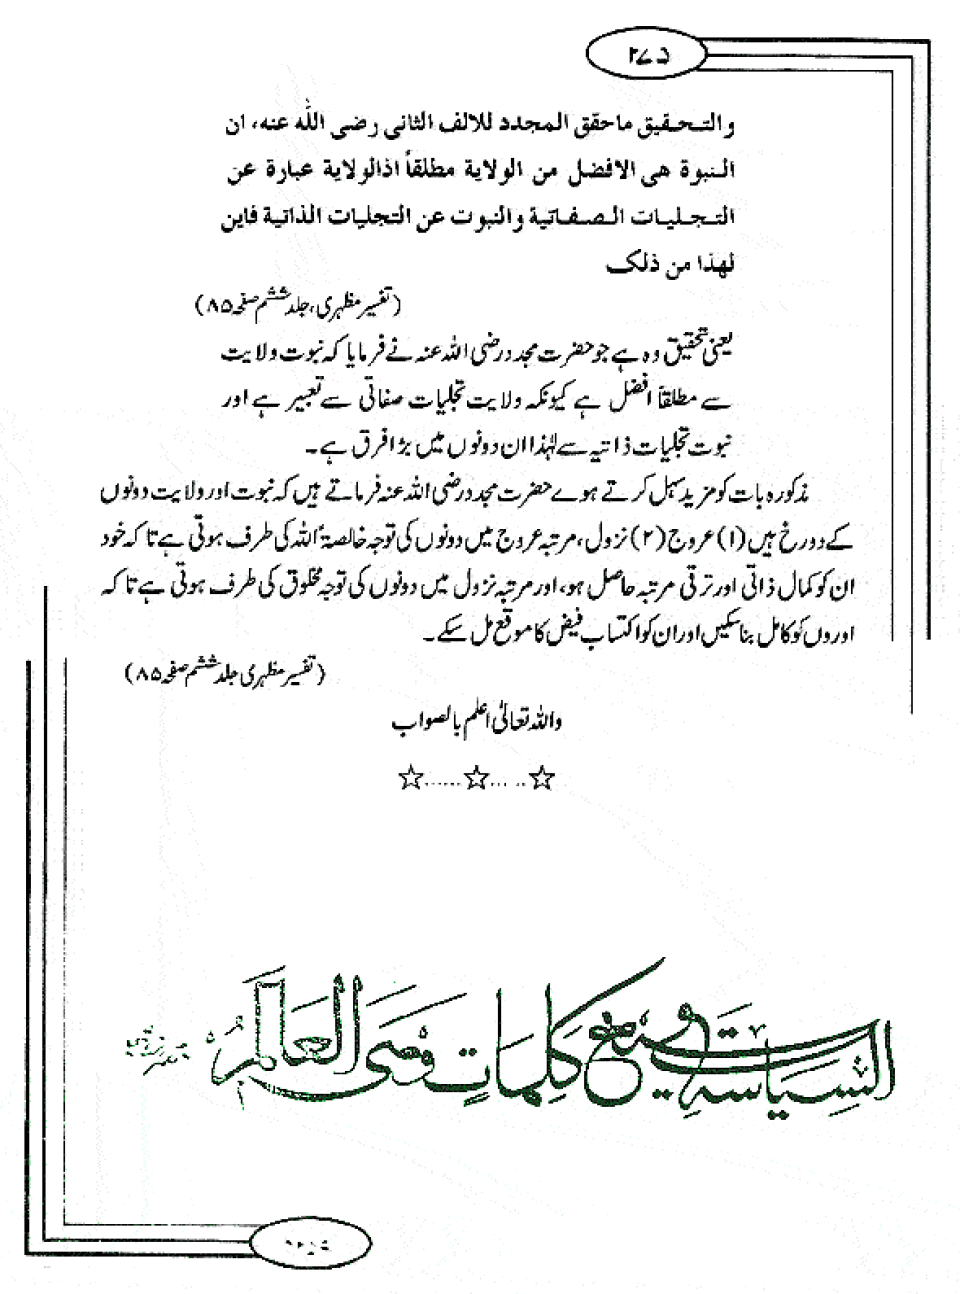 ۲۷۵
والتحقيق ماحقق المجدد للالف الثانى رضى الله عنه، ان
النبوة هى الافضل من الولاية مطلقاً اذالولاية عبارة عن
التجليات الصفاتية والنبوت عن التجليات الذاتية فاين
لهذا من ذلک
(تفسیر مظہری، جلد ششم صفحہ ۸۵)
یعنی تحقیق وہ ہے جو حضرت مجدد رضی اللہ عنہ نے فرمایا کہ نبوت ولایت
سے مطلقاً افضل ہے کیونکہ ولایت تجلیات صفاتی سے تعبیر ہے اور
نبوت تجلیات ذاتیہ سے لہٰذا ان دونوں میں بڑا فرق ہے۔
مذکورہ بات کو مزید سہل کرتے ہوے حضرت مجدد رضی اللہ عنہ فرماتے ہیں کہ نبوت اور ولایت دونوں
کے دو رخ ہیں (۱) عروج (۲) نزول، مرتبہ عروج میں دونوں کی توجہ خالصۃً اللہ کی طرف ہوتی ہے تاکہ خود
ان کو کمال ذاتی اور ترقی مرتبہ حاصل ہو، اور مرتبہ نزول میں دونوں کی توجہ مخلوق کی طرف ہوتی ہے تاکہ
اوروں کو کامل بنا سکیں اور ان کو اکتساب فیض کا موقع مل سکے۔
(تفسیر مظہری جلد ششم صفحہ ۸۵)
واللہ تعالیٰ اعلم بالصواب
☆......☆... ..☆
کلمات وصی العالم